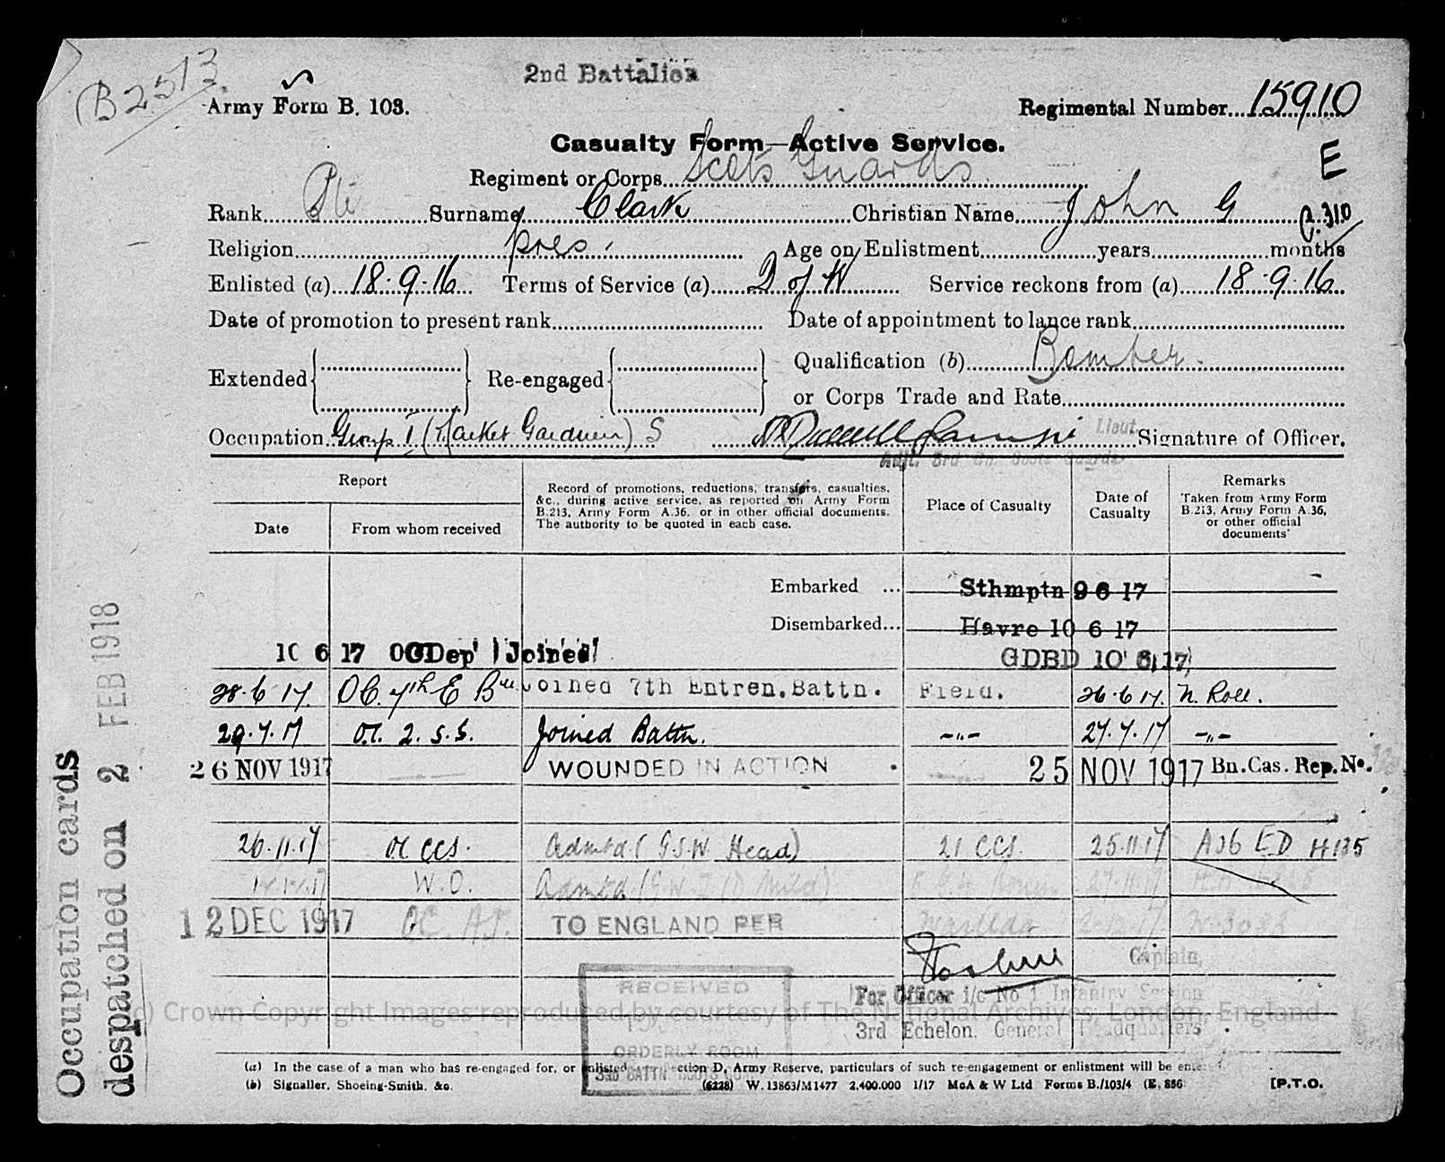 (B2513
2nd Battalion
Army Form B. 103.
Regimental Number 15910
Casualty Form—Active Service.
E
Regiment or Corps Scots Guards
Rank Pte Surname Clark Christian Name John G
C.310
Religion pres. Age on Enlistment years months
Enlisted (a) 18.9.16 Terms of Service (a) D of W Service reckons from (a) 18.9.16
Date of promotion to present rank Date of appointment to lance rank
Extended Re-engaged Qualification (b) Bomber.
or Corps Trade and Rate
Occupation Group I (Market Gardener) S Lieut Signature of Officer.
Adjt. 3rd Bn. Scots Guards
Report
Date From whom received
Record of promotions, reductions, transfers, casualties,
&c., during active service, as reported on Army Form
B.213, Army Form A.36. or in other official documents.
The authority to be quoted in each case.
Place of Casualty
Date of
Casualty
Remarks
Taken from Army Form
B.213, Army Form A.36,
or other official
documents
Embarked ... Sthmptn 9 6 17
Disembarked... Havre 10 6 17
10 6 17 Dep Joined GDBD 10 6 17
28.6.17. OC. 7th E Bn Joined 7th Entren. Battn. Field. 26.6.17. N. Roll.
29.7.17 O.C. 2. S.G. Joined Battn. -"- 27.7.17 -"-
26 NOV 1917 WOUNDED IN ACTION 25 NOV 1917 Bn. Cas. Rep. No.
26.11.17 OC CCS. Admtd (G.S.W. Head) 21 CCS. 25.11.17 A36 ED H135
W.O. Admtd. 27.11.17
12 DEC 1917 OC. A.T. TO ENGLAND PER 2.12.17 W3083
Captain,
For Officer i/c No 1 Infantry Section
3rd Echelon. General Headquarters
RECEIVED
ORDERLY ROOM
3RD BATTN SCOTS GUARDS
Occupation cards
despatched on 2 FEB 1918
(c) Crown Copyright Images reproduced by courtesy of The National Archives, London, England
(a) In the case of a man who has re-engaged for, or enlisted ection D, Army Reserve, particulars of such re-engagement or enlistment will be
(b) Signaller, Shoeing-Smith, &c. (6228) W.13863/M1477 2,400,000 1/17 McA & W Ltd Forms B./103/4 (E. 856 [P.T.O.